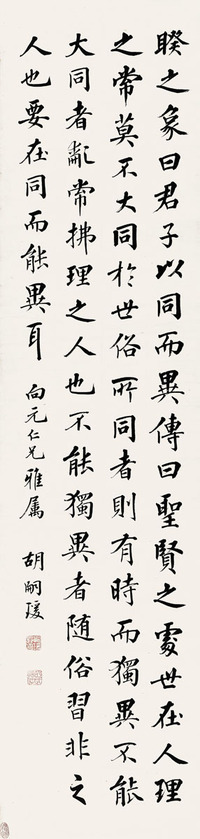 睽之象曰君子以同而異傳曰聖賢之處世在人理
之常莫不大同於世俗所同者則有時而獨異不能
大同者亂常拂理之人也不能獨異者随俗習非之
人也要在同而能異耳
向元仁兄雅屬
胡嗣瑗